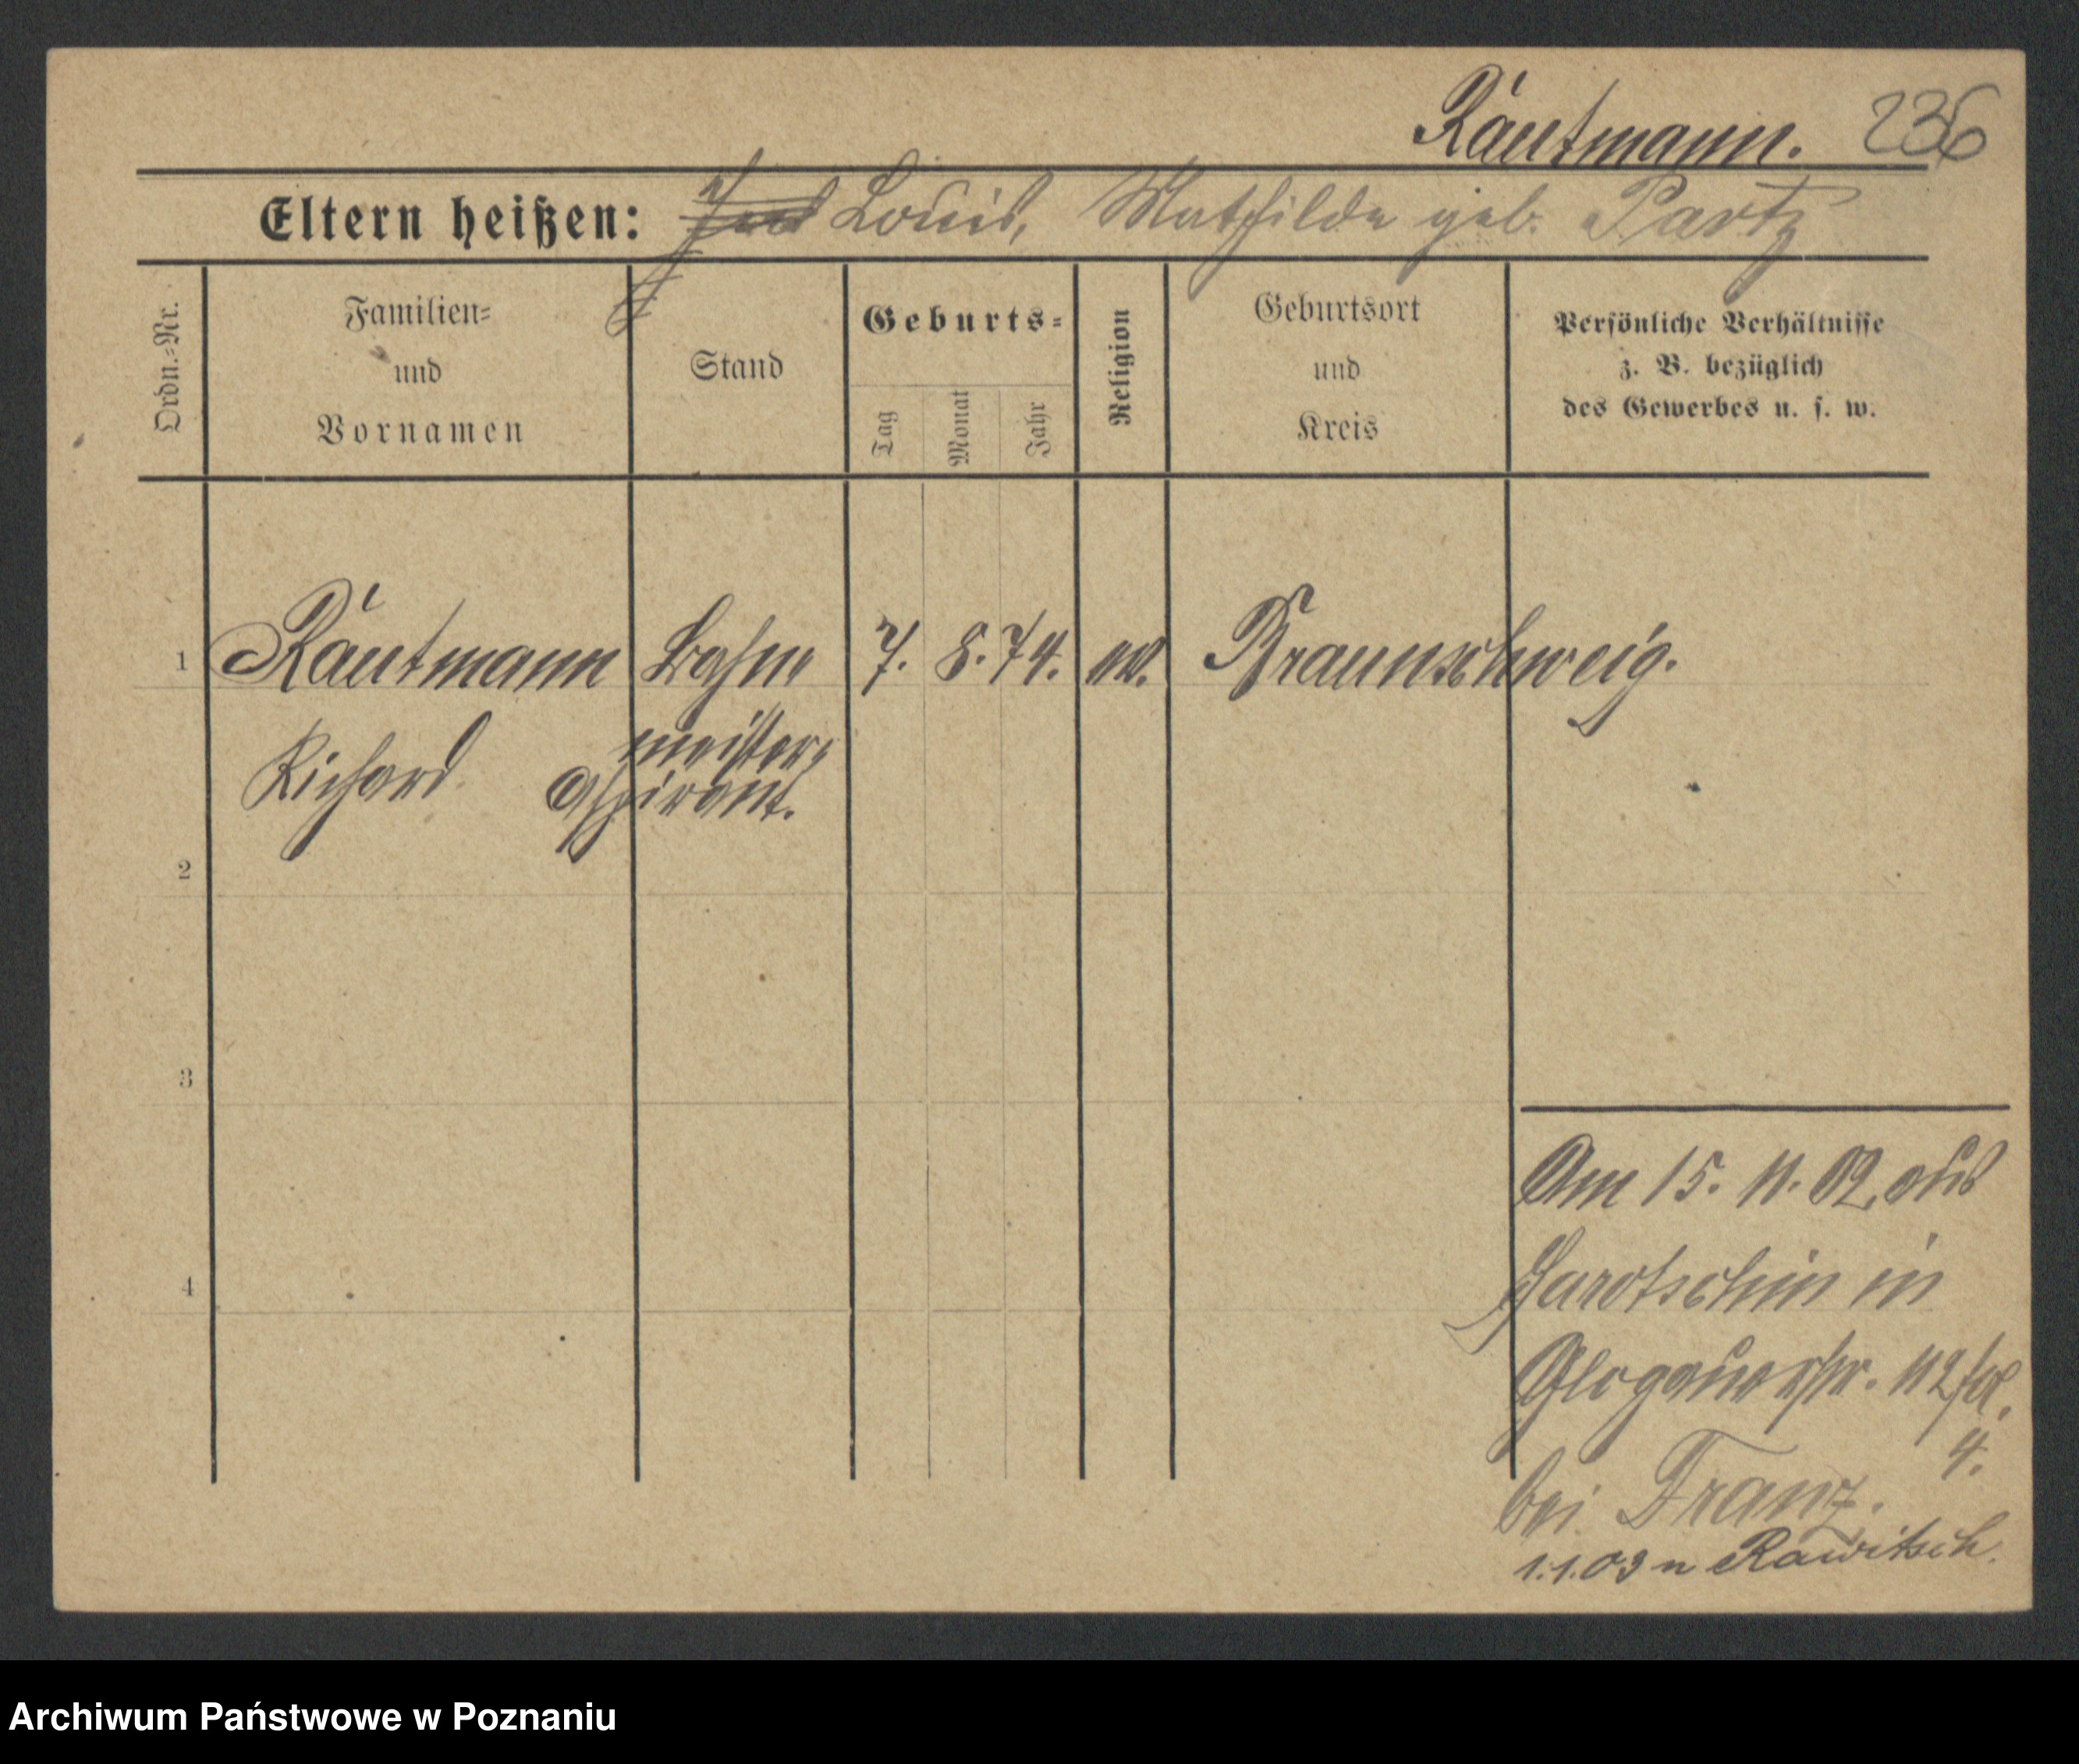 Räutmann. 236
Eltern heißen: Louis, Mathilde geb. Partz
Ordn.-Nr.
Familien-
und
Vornamen
Stand
Geburts-
Tag
Monat
Jahr
Religion
Geburtsort
und
Kreis
Persönliche Verhältnisse
z. B. bezüglich
des Gewerbes u. s. w.
1 Räutmann Bahn- 7. 8. 74. ev. Braunschweig.
Richard meister-
Aspirant.
2
3
4
Am 15. 11. 02. aus
Jarotschin in
Glogauerstr. 112/
4.
bei Franz.
1.1.03 n Rawitsch.
Archiwum Państwowe w Poznaniu